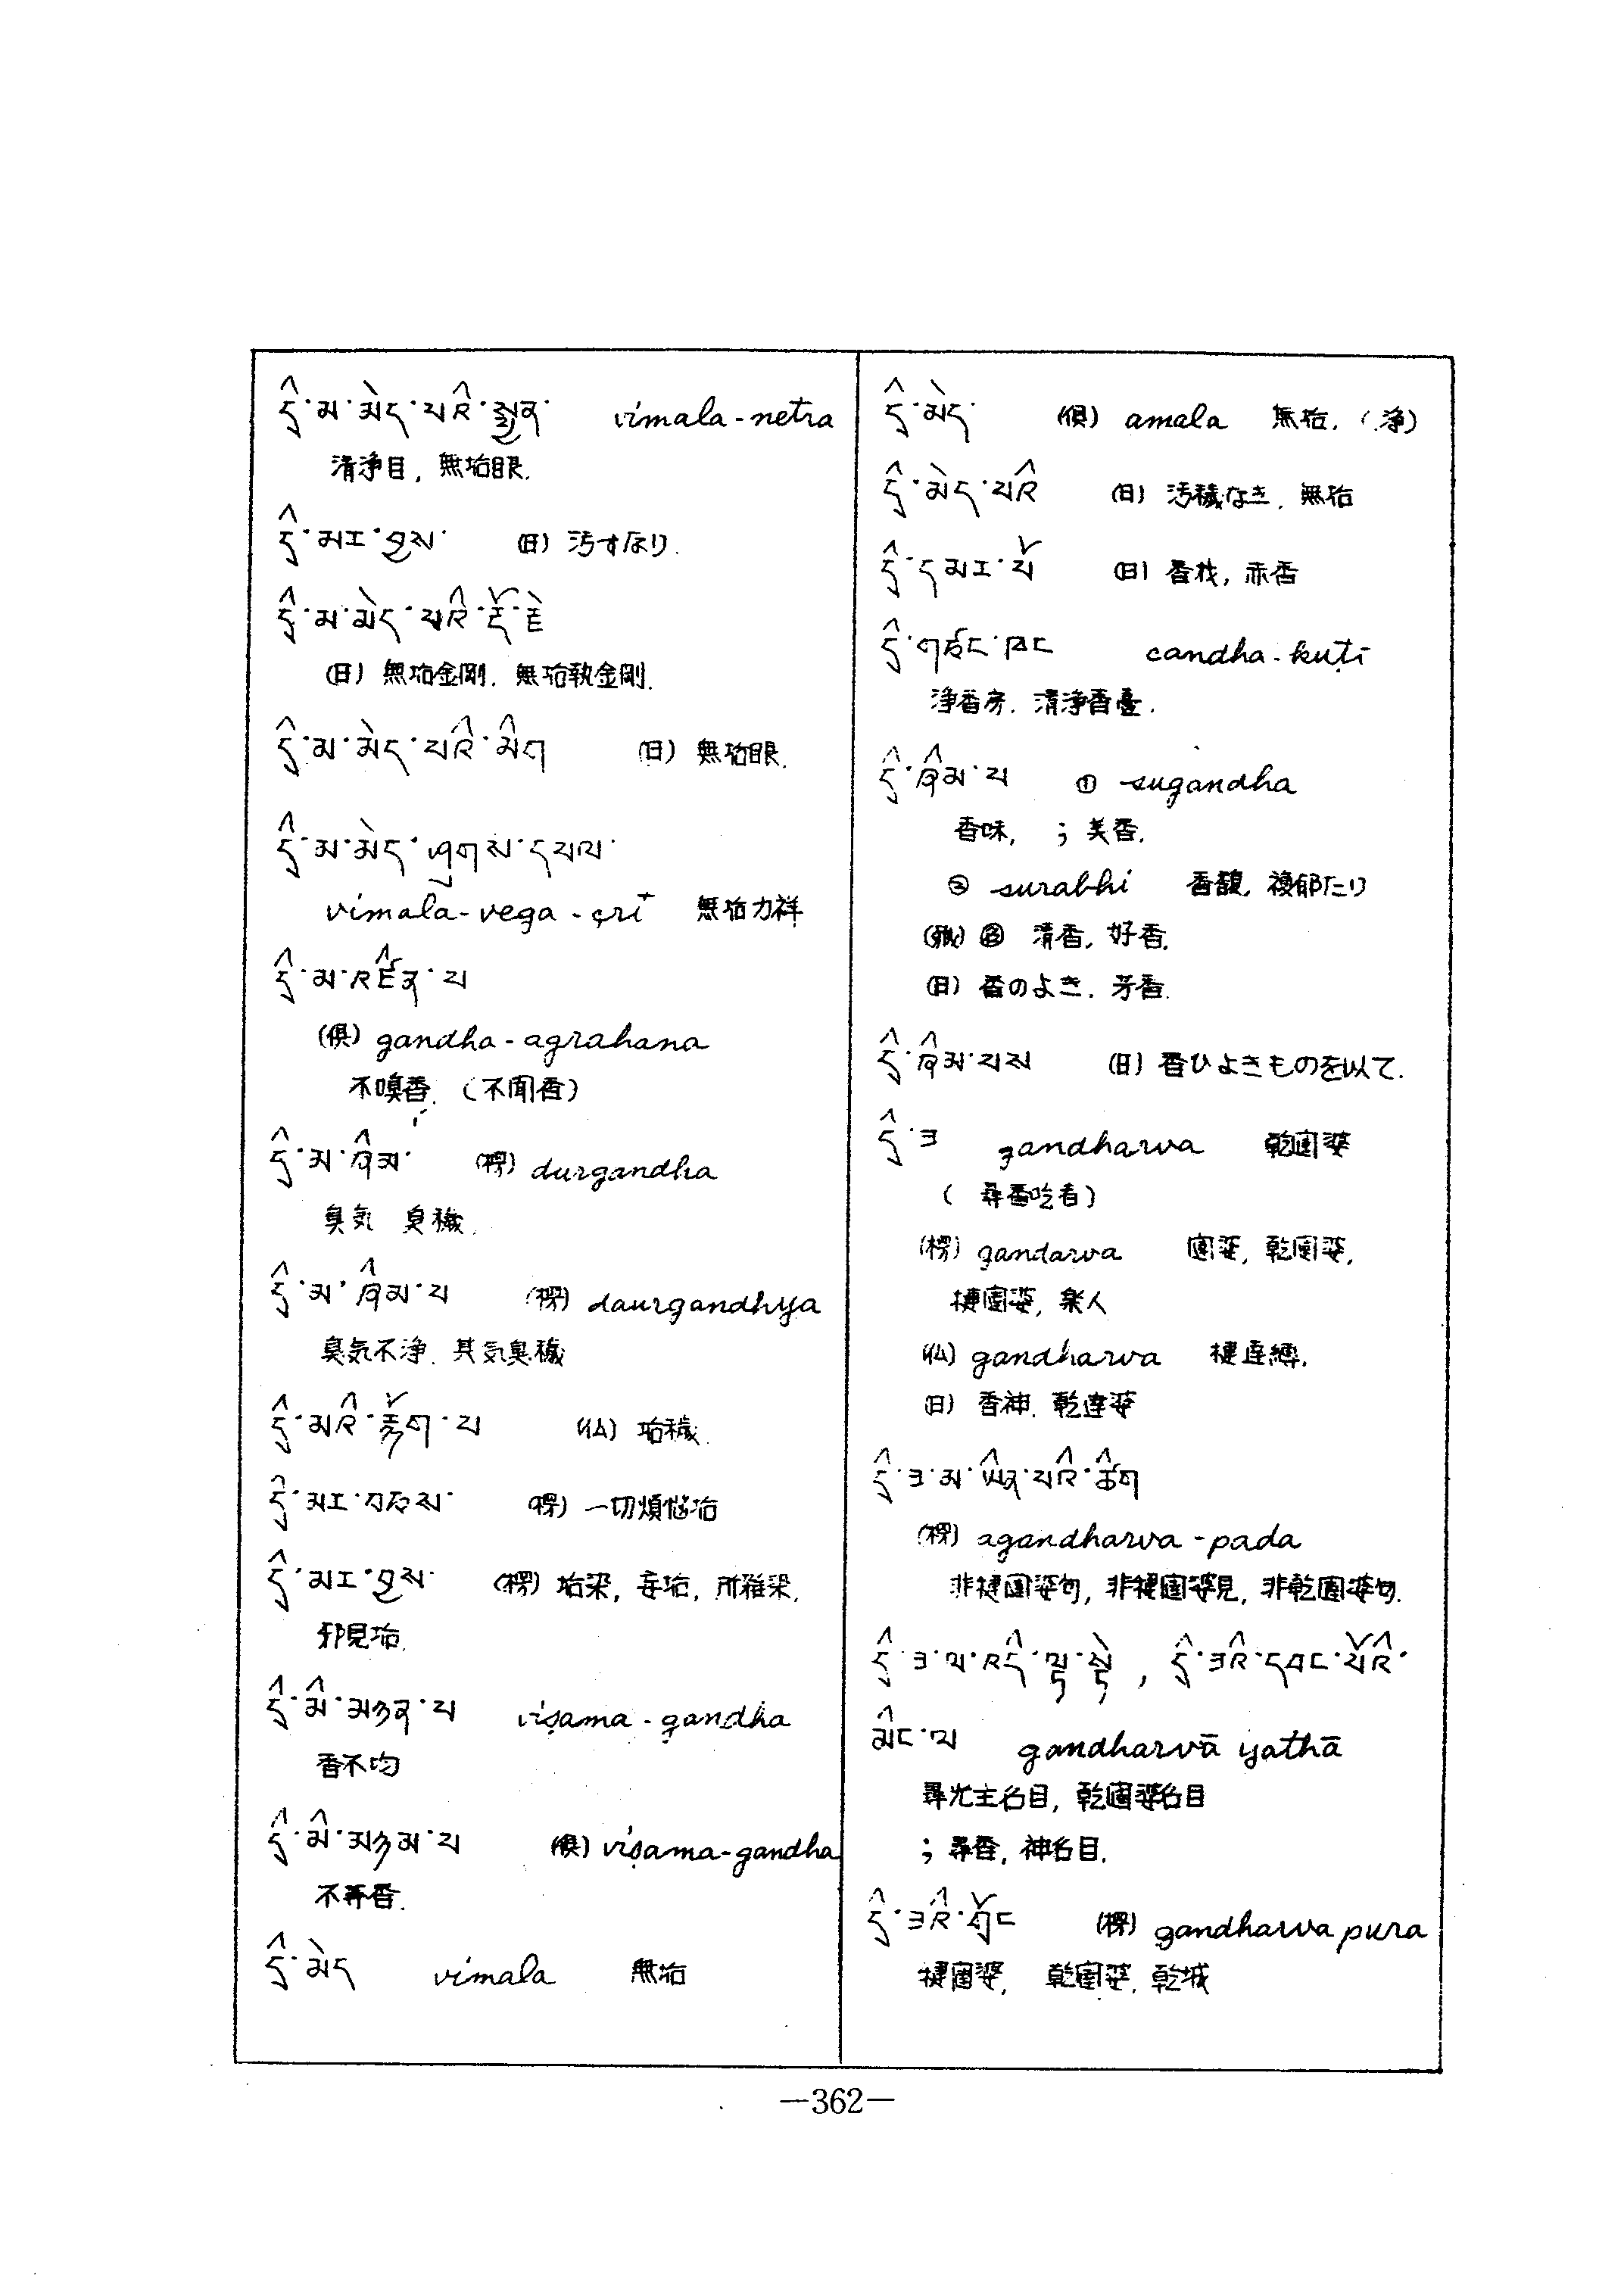 དྲི་མ་མེད་པའི་སྤྱན་ vimala-netra
清浄目, 無垢眼.
དྲི་མར་བྱས་ (日) 汚すなり.
དྲི་མ་མེད་པའི་རྡོ་རྗེ
(日) 無垢金剛. 無垢執金剛.
དྲི་མ་མེད་པའི་མིག (日) 無垢眼.
དྲི་མ་མེད་ཤུགས་དཔལ་
vimala-vega-çrī 無垢力祥
དྲི་མ་འཛིན་པ
(倶) gandha-agrahana
不嗅香. (不聞香)
དྲི་མ་ཞིམ་ (楞) durgandha
臭気 臭穢.
དྲི་མ་ཞིམ་པ (楞) daurgandhya
臭気不浄. 其気臭穢
དྲི་མའི་རྙོག་པ (仏) 垢穢.
དྲི་མར་བཅས་ (楞) 一切煩悩垢
དྲི་མར་བྱས་ (楞) 垢染, 妄垢, 所雑染.
邪見垢.
དྲི་མི་མཉན་པ viṣama-gandha
香不均
དྲི་མི་མཉམ་པ (倶) viṣama-gandha
不等香.
དྲི་མེད vimala 無垢
དྲི་མེད་ (倶) amala 無垢. (浄)
དྲི་མེད་པའི (日) 汚穢なき. 無垢
དྲི་དམར་པོ (日) 香栈, 赤香
དྲི་གཙང་ཁང candha-kuṭī
浄香房. 清浄香臺.
དྲི་ཞིམ་པ ① sugandha
香味, ; 美香.
② surabhi 香馥, 複郁たり
清香, 好香.
(日) 香のよき. 茅香.
དྲི་ཞིམ་པས (日) 香ひよきものを以て.
དྲི་ཟ gandharva 乾闥婆
( 尋香吃者)
(楞) gandarva 闥婆, 乾闥婆,
揵闥婆, 楽人
(仏) gandharva 揵達縛.
(日) 香神. 乾達婆
དྲི་ཟ་མ་ཡིན་པའི་ཚིག
(楞) agandharva-pada
非揵闥婆句, 非揵闥婆見, 非乾闥婆句.
དྲི་ཟ་ལ་འདི་ལྟ་སྟེ , དྲི་ཟའི་དབང་པོའི་
མིང་ལ gandharvā yathā
尋光主名目, 乾闥婆名目
; 尋香, 神名目.
དྲི་ཟའི་གྲོང (楞) gandharva pura
揵闥婆, 乾闥婆. 乾城
—362—